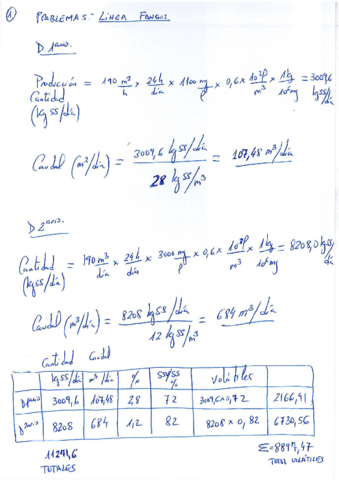 ① PROBLEMAS - LÍNEA FANGOS
D. 1ario.
Producción = 190 m³/h × 24h/día × 1100 mg/l × 0,6 × 10³l/m³ × 1kg/10⁶mg = 3009,6 kgSS/día
Cantidad
(kgSS/día)
Caudal (m³/día) = 3009,6 kgSS/día / 28 kgSS/m³ = 107,48 m³/día
D 2ario.
Cantidad = 190 m³/día × 24h/día × 3000 mg/l × 0,6 × 10³l/m³ × 1kg/10⁶mg = 8208,0 kgSS/día
(kgSS/día)
Caudal (m³/día) = 8208 kgSS/día / 12 kgSS/m³ = 684 m³/día
Cantidad Caudal
kgSS/día m³/día % SSV/SS % Volátiles
D1ario 3009,6 107,48 2,8 72 3009,6×0,72 2166,91
D2ario 8208 684 1,2 82 8208 × 0,82 6730,56
11217,6 Σ=8897,47
TOTALES TOTAL VOLÁTILES